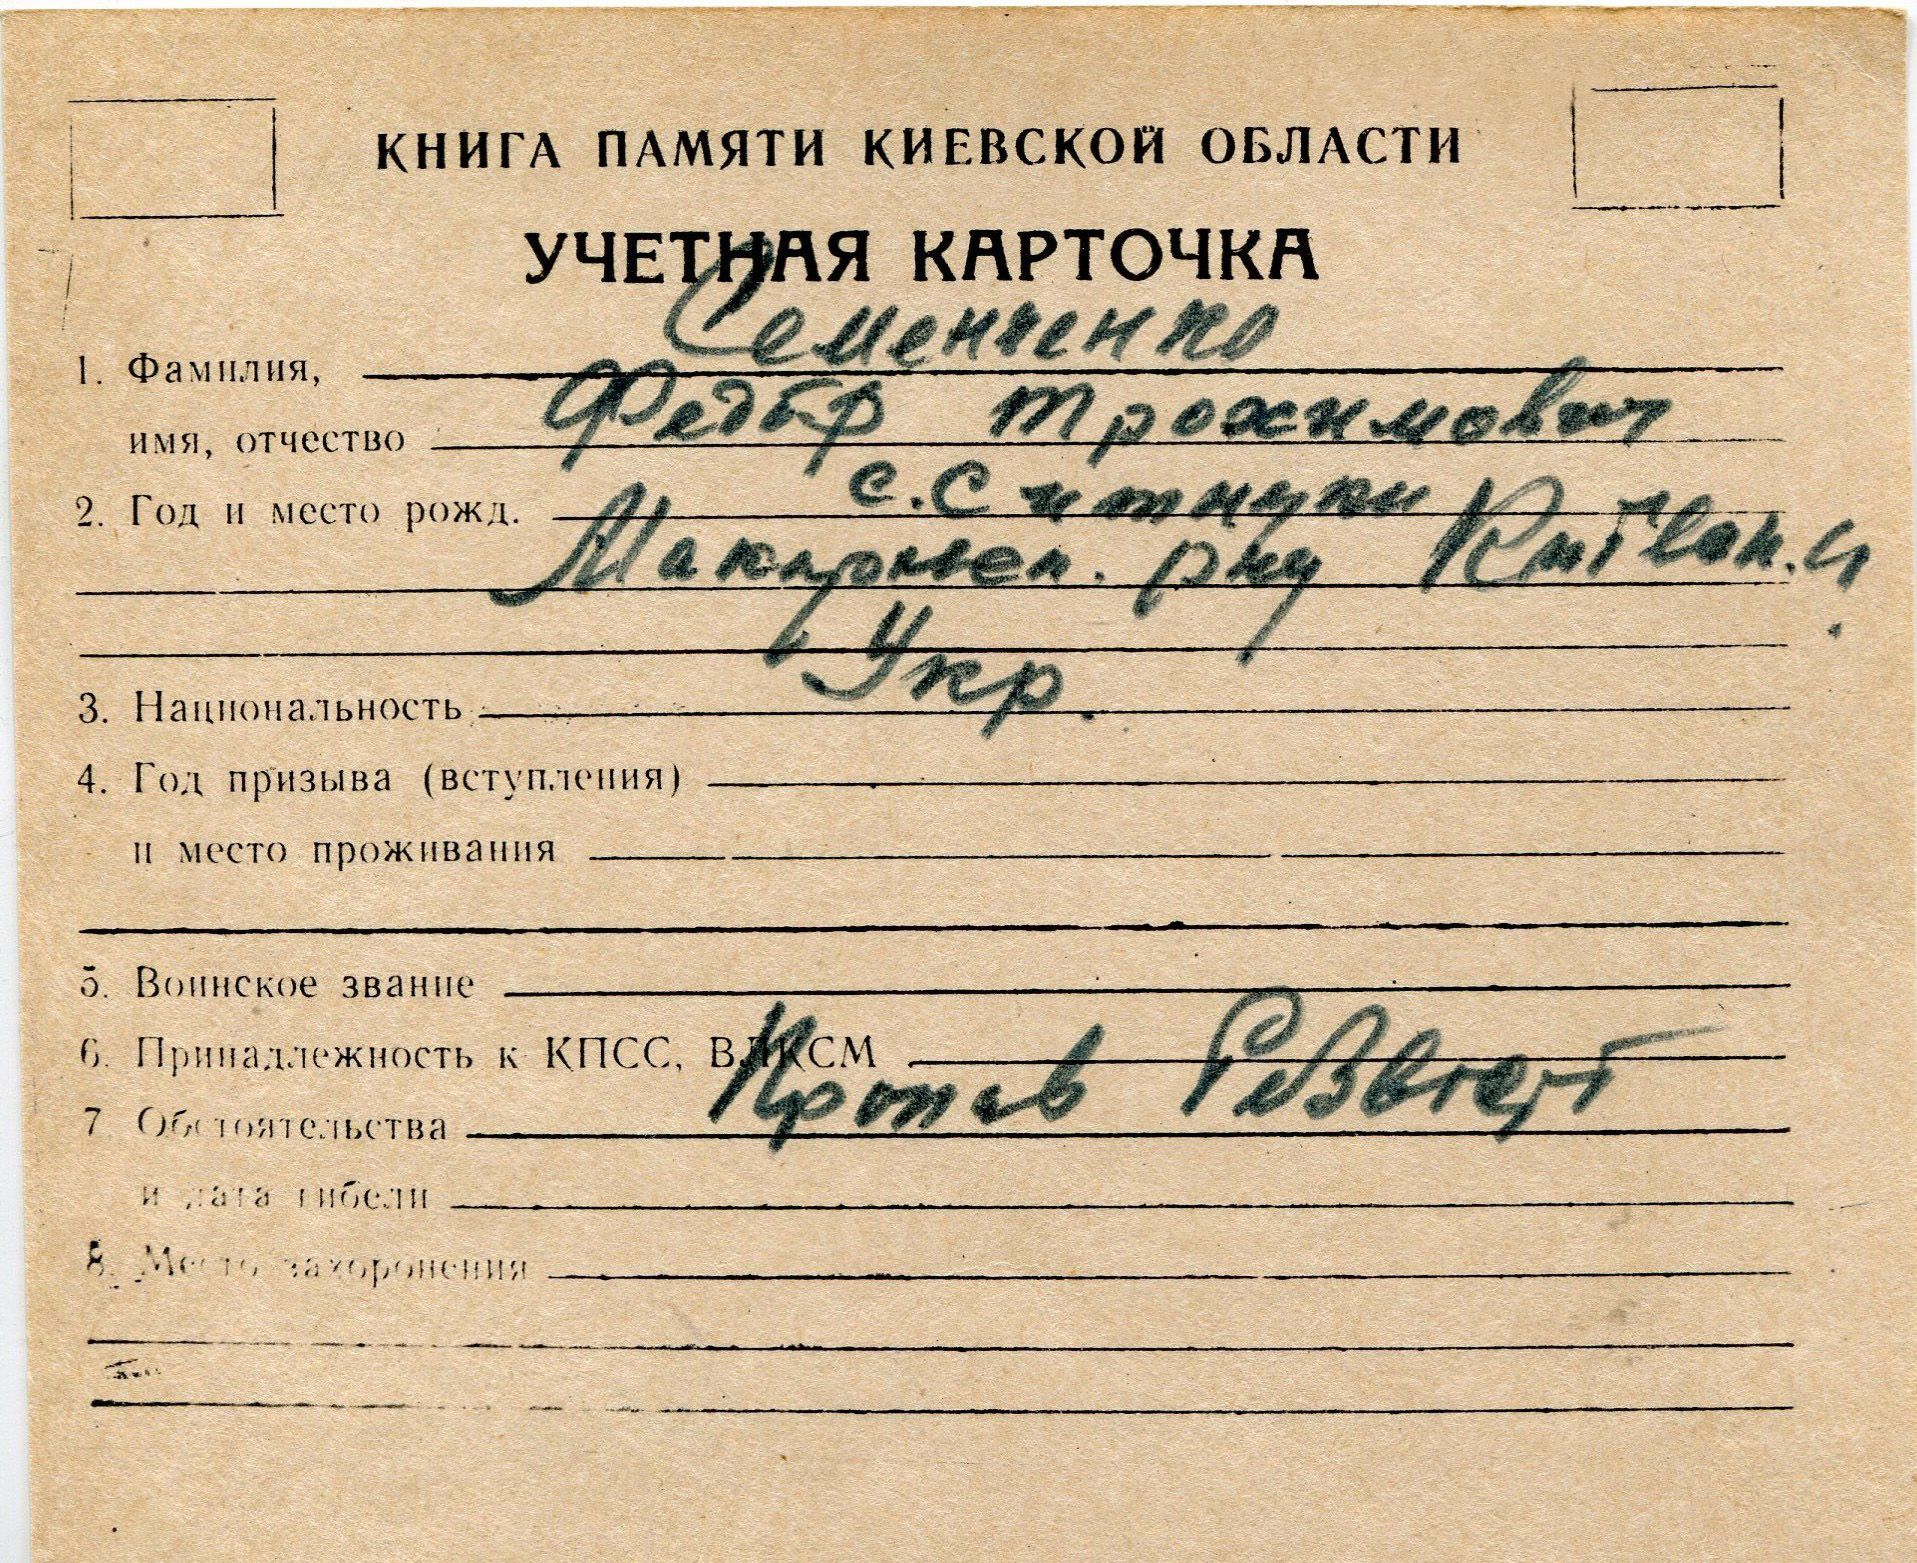 КНИГА ПАМЯТИ КИЕВСКОЙ ОБЛАСТИ
УЧЕТНАЯ КАРТОЧКА
Семенченко
1. Фамилия,
Федір Трохимович
имя, отчество
с. Ситняки
2. Год и место рожд.
Макарівсь. р-ну
Укр.
3. Национальность
4. Год призыва (вступления)
и место проживания
5. Воинское звание
6. Принадлежность к КПСС, ВЛКСМ
Пропав
7 Обстоятельства
и дата гибели
8. Место захоронения